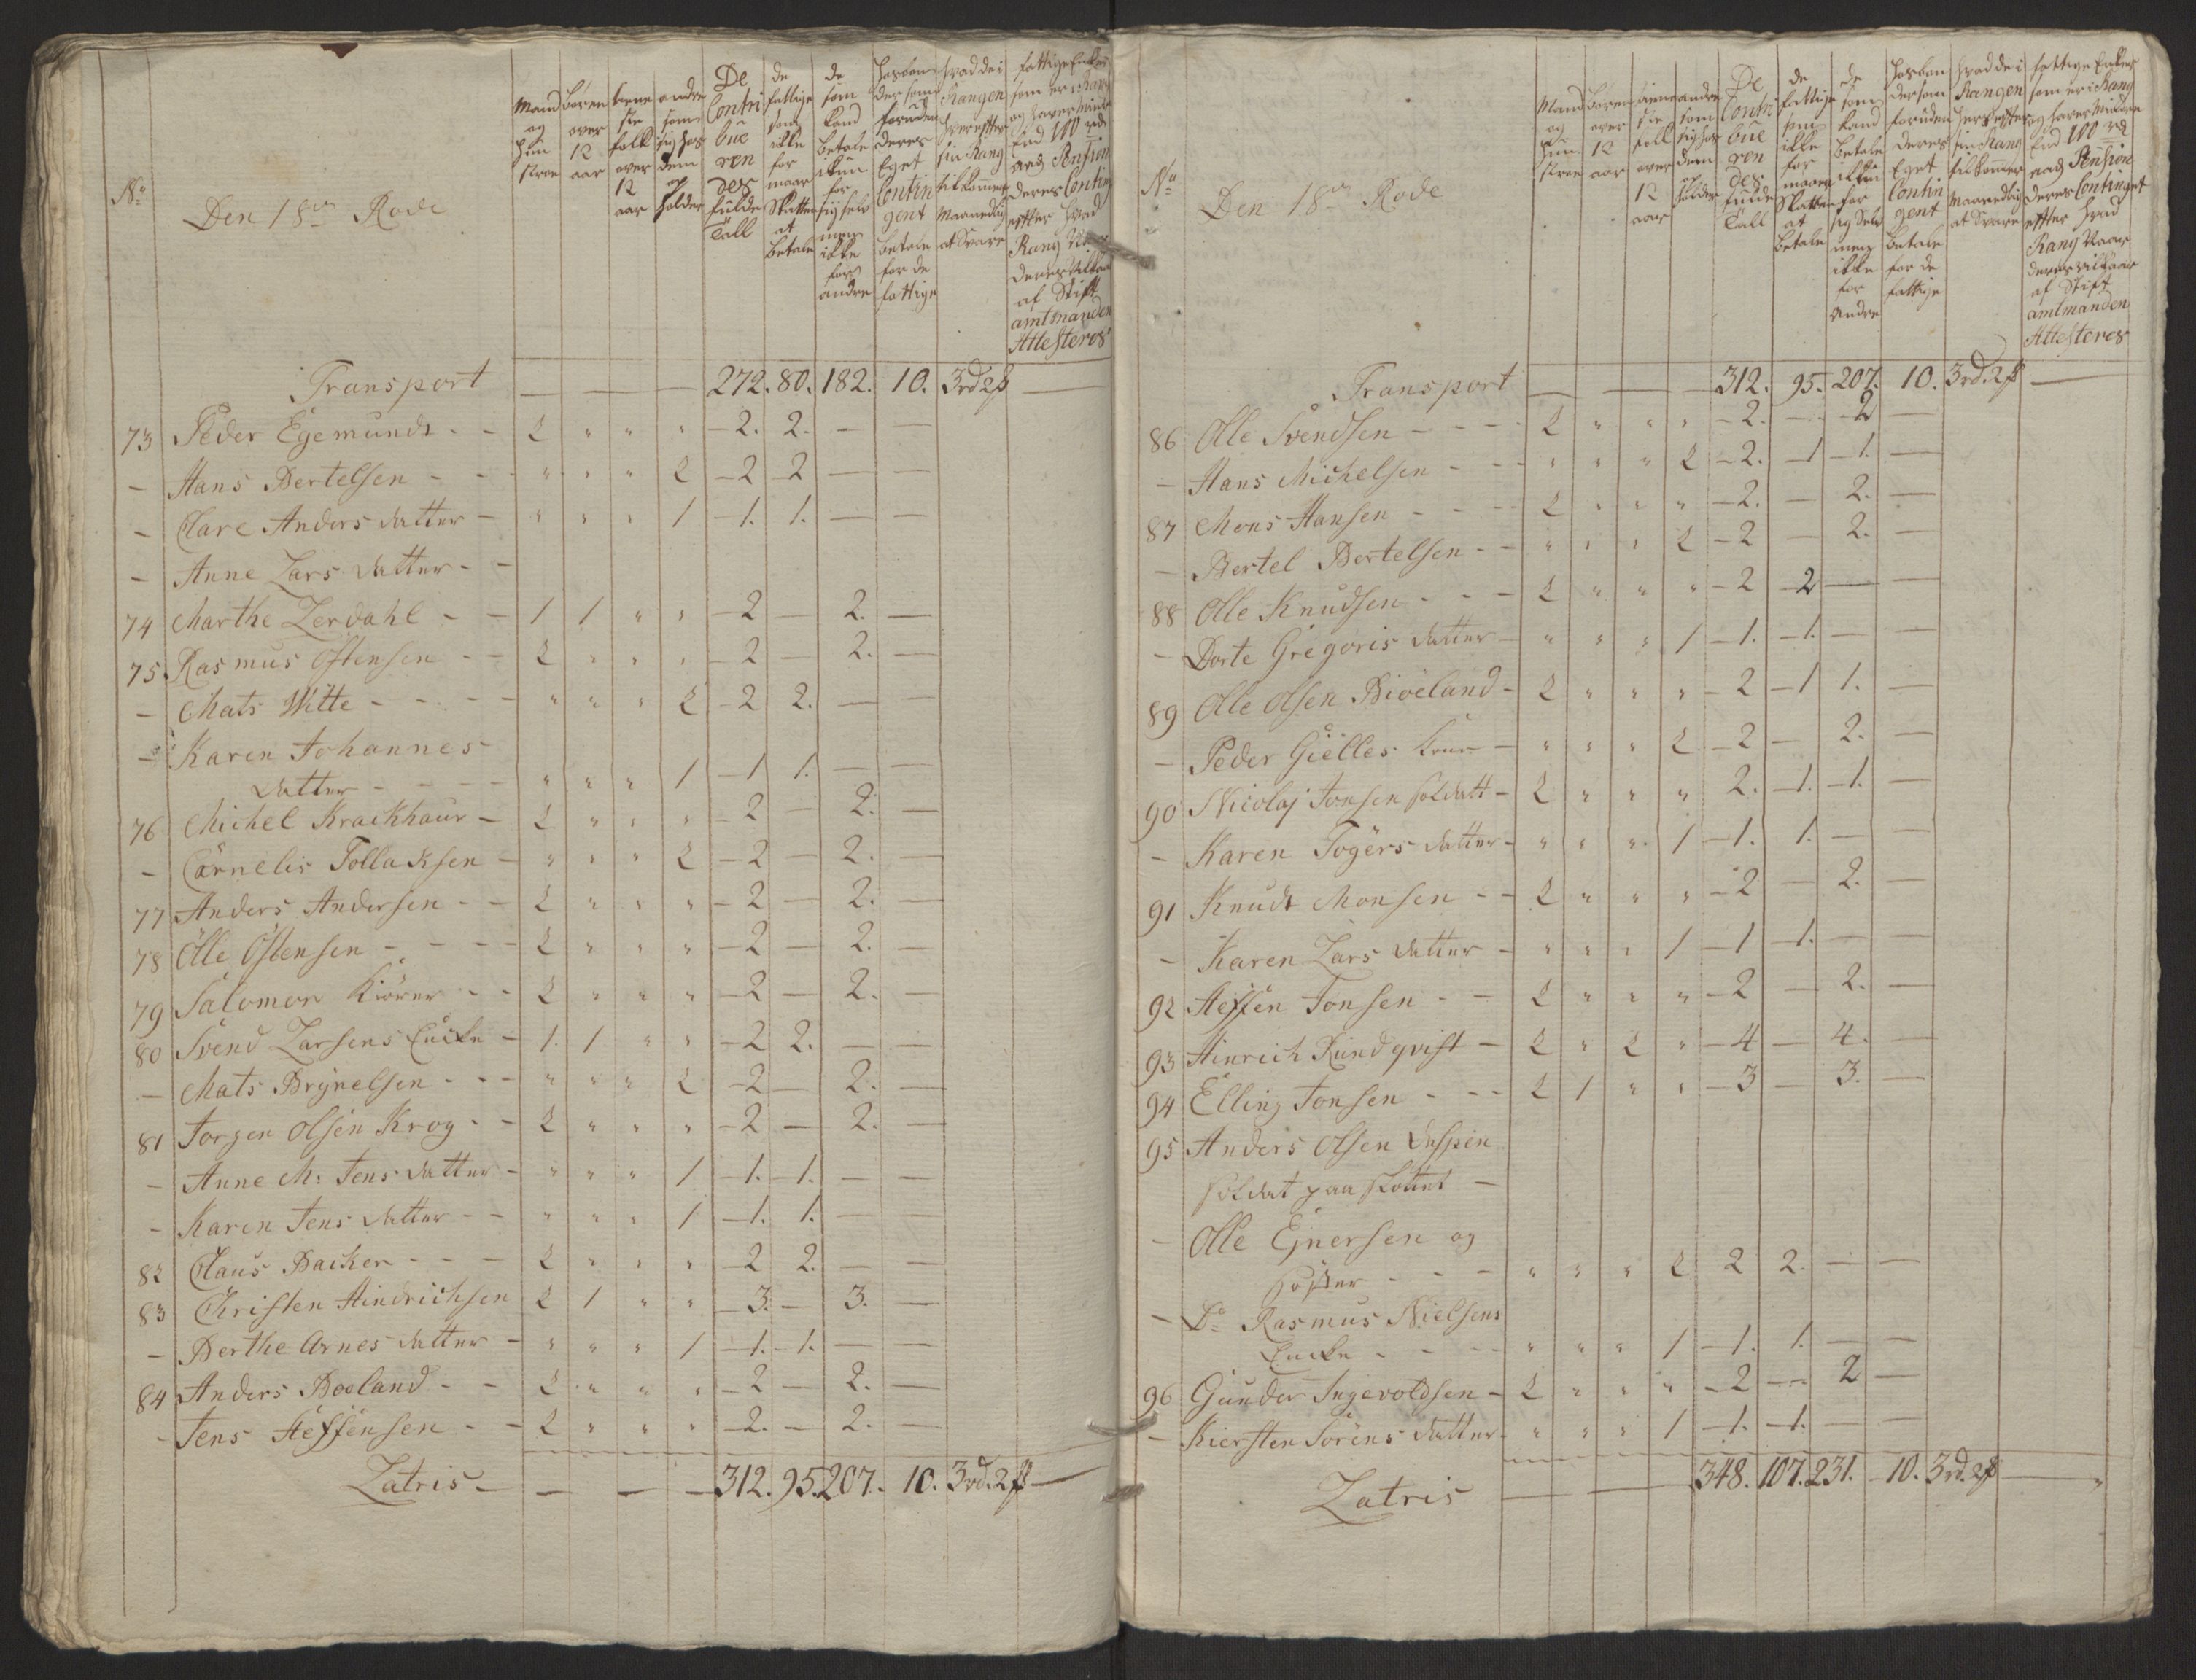 No
Den 18de Rode
Mand og Hun stroe
Børen over 12 aar
tienneste folk over 12 aar
andre som sig hos dem op holder
De Contribuerendes fulde Tall
de fattige som ikke for maar Skatten at betale
de som kand betale ikun for sig selv men ikke for andre
Hosbonder som foruden deres Eget Contingent betale for de fattige
hvad de i Rangen hver efter sin Rang tilkommer Maanedlig at Svare
fattige Enker som er i Rang og haver Mindre End 100 rd aarlig Pension deres Contingent efter hvad Rang Naar deres vilkaar af Stift amtmanden Attesteres
Transport — — — 272. 80. 182. 10. 3rd 2ß —
73 Peder Egemundt - - 2 " " " - 2. 2. — —
- Hans Bertelsen - - " " " 2 - 2 2 — —
- Clare Anders datter - " " " 1 - 1. 1. — —
- Anne Lars datter - -
74 Marthe Lerdahl - - 1 1 " " - 2 — 2. —
75 Rasmus Ostensen - - 2 " " " - 2 — 2. —
- Mats Witte - - - - " " " 2 - 2 2. — —
- Karen Johannes
datter - - - - " " " 1 - 1 1. — —
76 Michel Krackhaur - 2 " " " - 2 — 2. —
- Cornelis Tollacksen - " " " 2 - 2 — 2. —
77 Anders Andersen - - 2 " " " - 2 — 2. —
78 Olle Ostensen - - - - 2 " " " - 2 — 2. —
79 Salomon Kiörer - - 2 " " " - 2 — 2. —
80 Svend Larsens Encke - 1. 1 " " - 2 2. — —
- Mats Brynelsen - - - " " " 2 - 2 — 2. —
81 Jorgen Olsen Krog - - 2 " " " - 2 — 2. —
- Anne M: Jens datter - " " " 1 - 1. - 1. — —
- Karen Jens datter - - " " " 1 - 1. 1. — —
82 Claus Backer - - - 2 " " " - 2 2. — —
83 Christen Hindrichsen 2 1 " " - 3. — 3. —
- Berthe Arnes datter - " " " 1 - 1. - 1. — —
84 Anders Boeland - - 2 " " " - 2 — 2. —
- Jens Steffensen - - 2 " " " - 2. — 2. —
Latris - — — — 312. 95. 207. 10. 3rd. 2ß —
No
Den 18de Rode
Mand og Hun stroe
Børen over 12 aar
tienneste folk over 12 aar
andre som sig hos dem op holder
De Contribuerendes fulde Tall
de fattige som ikke for maaer Skatten at betale
de som kand betale ikkun for sig Selv men ikke for Andre
Hosbonder som foruden deres Eget Contingent betale for de fattige
hvad de i Rangen hver efter sin Rang tilkommer Maanedlig at Svare
fattige Enker som er i Rang og haver Mindre End 100 rd aarlig Pension deres Contingent efter hvad Rang Naar deres vilkaar af Stift amtmanden Attesteres
Transport — — 312. 95. 207. 10. 3rd. 2ß —
86 Olle Svendsen - - - - 2 " " " - 2. — 2 —
- Hans Michelsen - - - " " " 2 - 2. - 1 - 1. —
87 Mons Hansen - - - - 2 " " " - 2. — 2. —
- Bertel Bertelsen - - " " " 2 - 2 — 2. —
88 Olle Knudsen - - - 2 " " " - 2 - 2 — —
- Dorte Gregoris datter - " " " 1 - 1. - 1. — —
89 Olle Olsen Bioeland - 2 " " " - 2 - 1 1. —
- Peder Gielles Kone - " " " 2 - 2 — 2. —
90 Nicolaj Jonsen soldatt - 2 " " " 2. - 1. - 1. —
- Karen Togers datter - " " " 1 - 1. 1. — —
91 Knudt Monsen - - 2 " " " - 2 — 2. —
- Karen Lars datter - " " " 1 - 1 - 1. — —
92 Steffen Jonsen - - 2 " " " - 2 — 2. —
93 Hinrich Rundqvist - 2 " 2 " - 4 — 4. —
94 Elling Jonsen - - - 2 1 " " - 3 — 3. —
95 Anders OlsenUspen
soldat paa slottet —
- Olle Ejnersen og
søster - - - " " " 2 2 2. — —
- Do Rasmus Nielsens
Encke - - - - " " " 1 - 1. 1. — —
96 Gunder Ingevoldsen - 2 " " " - 2 — 2 —
- Kiersten Sorens datter - " " " 1 - 1. - 1. — —
Latris — — 348. 107. 231. 10. 3rd. 2ß — "